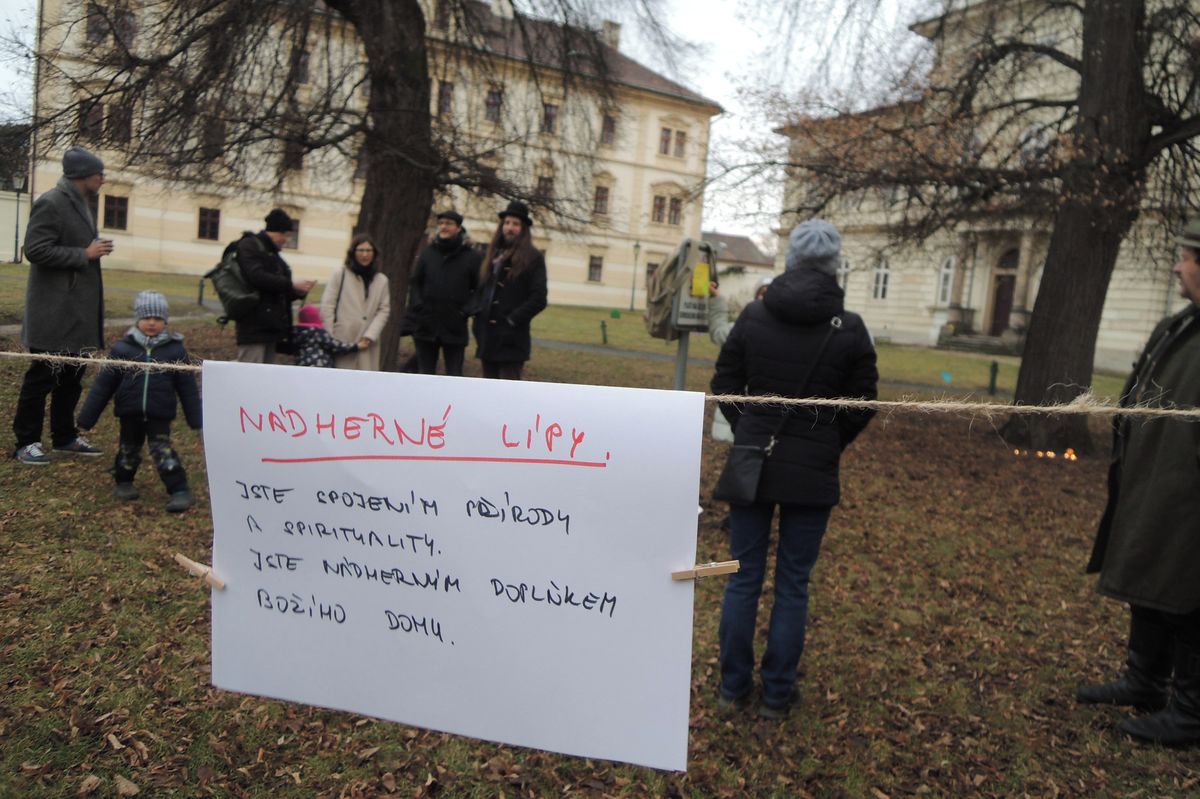 NÁDHERNÉ LÍPY.
JSTE SPOJENÍM PŘÍRODY
A SPIRITUALITY.
JSTE NÁDHERNÝM DOPLŇKEM
BOŽÍHO DOMU.